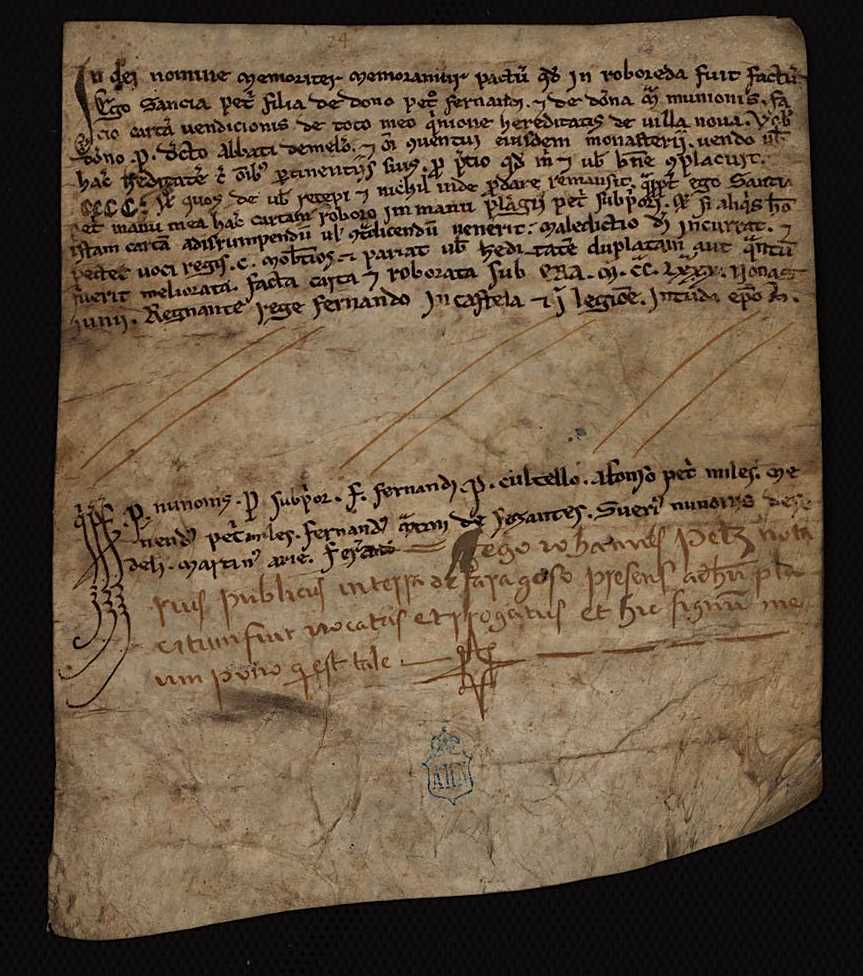 24
In dei nomine memoriter memoramur pactū qd̄ in roboreda fuit factū.
Ego Sancia pet̄ filia de dono pet̄ fernandi. ⁊ de dōna m̄ munionis. fa
cio cartā vendicionis de toto meo q̄nione hereditatis de villa nova. vob̄
dōno .p. dc̄to Abbati de melō. ⁊ om̄i ꝯventui eiusdem monasterii. vendo ub̄
hac̄ heditatē cū om̄ib; ꝑtinentiis suis. ꝓ p̄tio qd̄ m̄ ⁊ ub̄ bn̄e ꝯplacuit.
CCC. quos de ub̄ recepi ⁊ nichil inde ꝑdare remansit. ego Santia
pet̄ manu mea hac̄ cartam roboro in manu pelagii pet̄ subp̄oris. si aliq̄s hō
istam cartā ad irrumpendū ul̄ ꝯtradicendū venerit. maledictio dī incurrat. ⁊
pectet voci regis .c. mōbtinos. ⁊ pariat ub̄ heditatē duplatam aut q̄ntū
fuerit meliorata. facta carta ⁊ roborata sub ERA. M. CC. LXXX. nonas
iunii. Regnante rege fernando in castela ⁊ ī legiōe. in tuda ep̄o
.P. nunonis .P. subp̄or. F. fernandi .P. cultello. Alfonso pet̄ miles. me
nend; pet̄ miles. fernand; m̄tini de sesantes. Sueri; nunonis de
deli. martin; arie.
ego iohannes petri nota
rius publicus in terra de presens ad hūc pla
citum fui vocatus et rogatus et hic signū me
um pono q̄ est tale
AHN